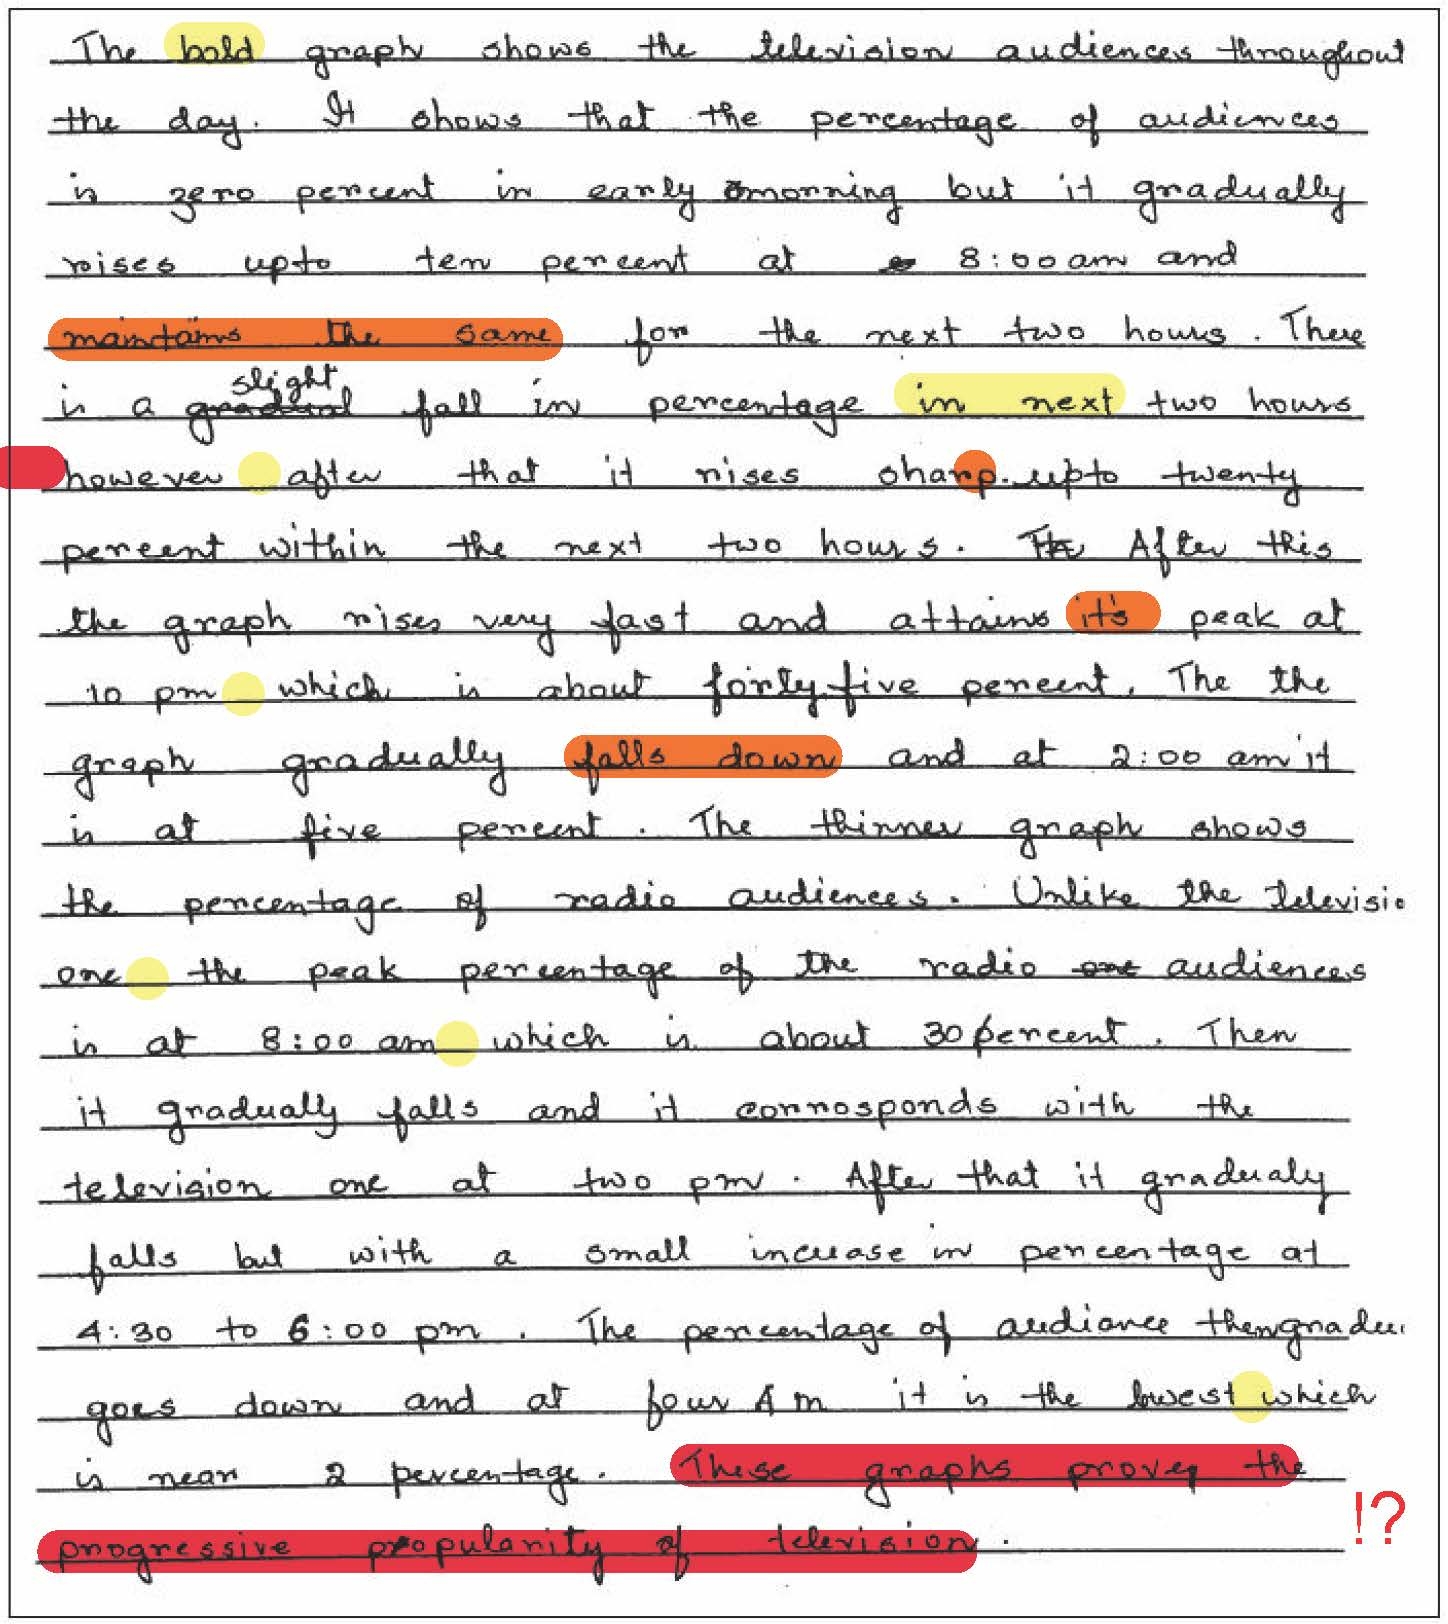 The bold graph shows the television audiences throughout
the day. It shows that the percentage of audiences
is zero percent in early morning but it gradually
rises upto ten percent at 8:00 am and
maintains the same for the next two hours. There
is a gradual slight fall in percentage in next two hours
however after that it rises sharp. upto twenty
percent within the next two hours. After this
the graph rises very fast and attains it's peak at
10 pm which is about forty five percent. The the
graph gradually falls down and at 2:00 am it
is at five percent. The thinner graph shows
the percentage of radio audiences. Unlike the televisio
one the peak percentage of the radio one audiences
is at 8:00 am which is about 30 percent. Then
it gradually falls and it corrosponds with the
television one at two pm. After that it gradualy
falls but with a small increase in percentage at
4:30 to 6:00 pm. The percentage of audiance then gradu
goes down and at four Am it is the lowest which
is near 2 percentage. These graphs proves the
progressive propularity of television.
!?